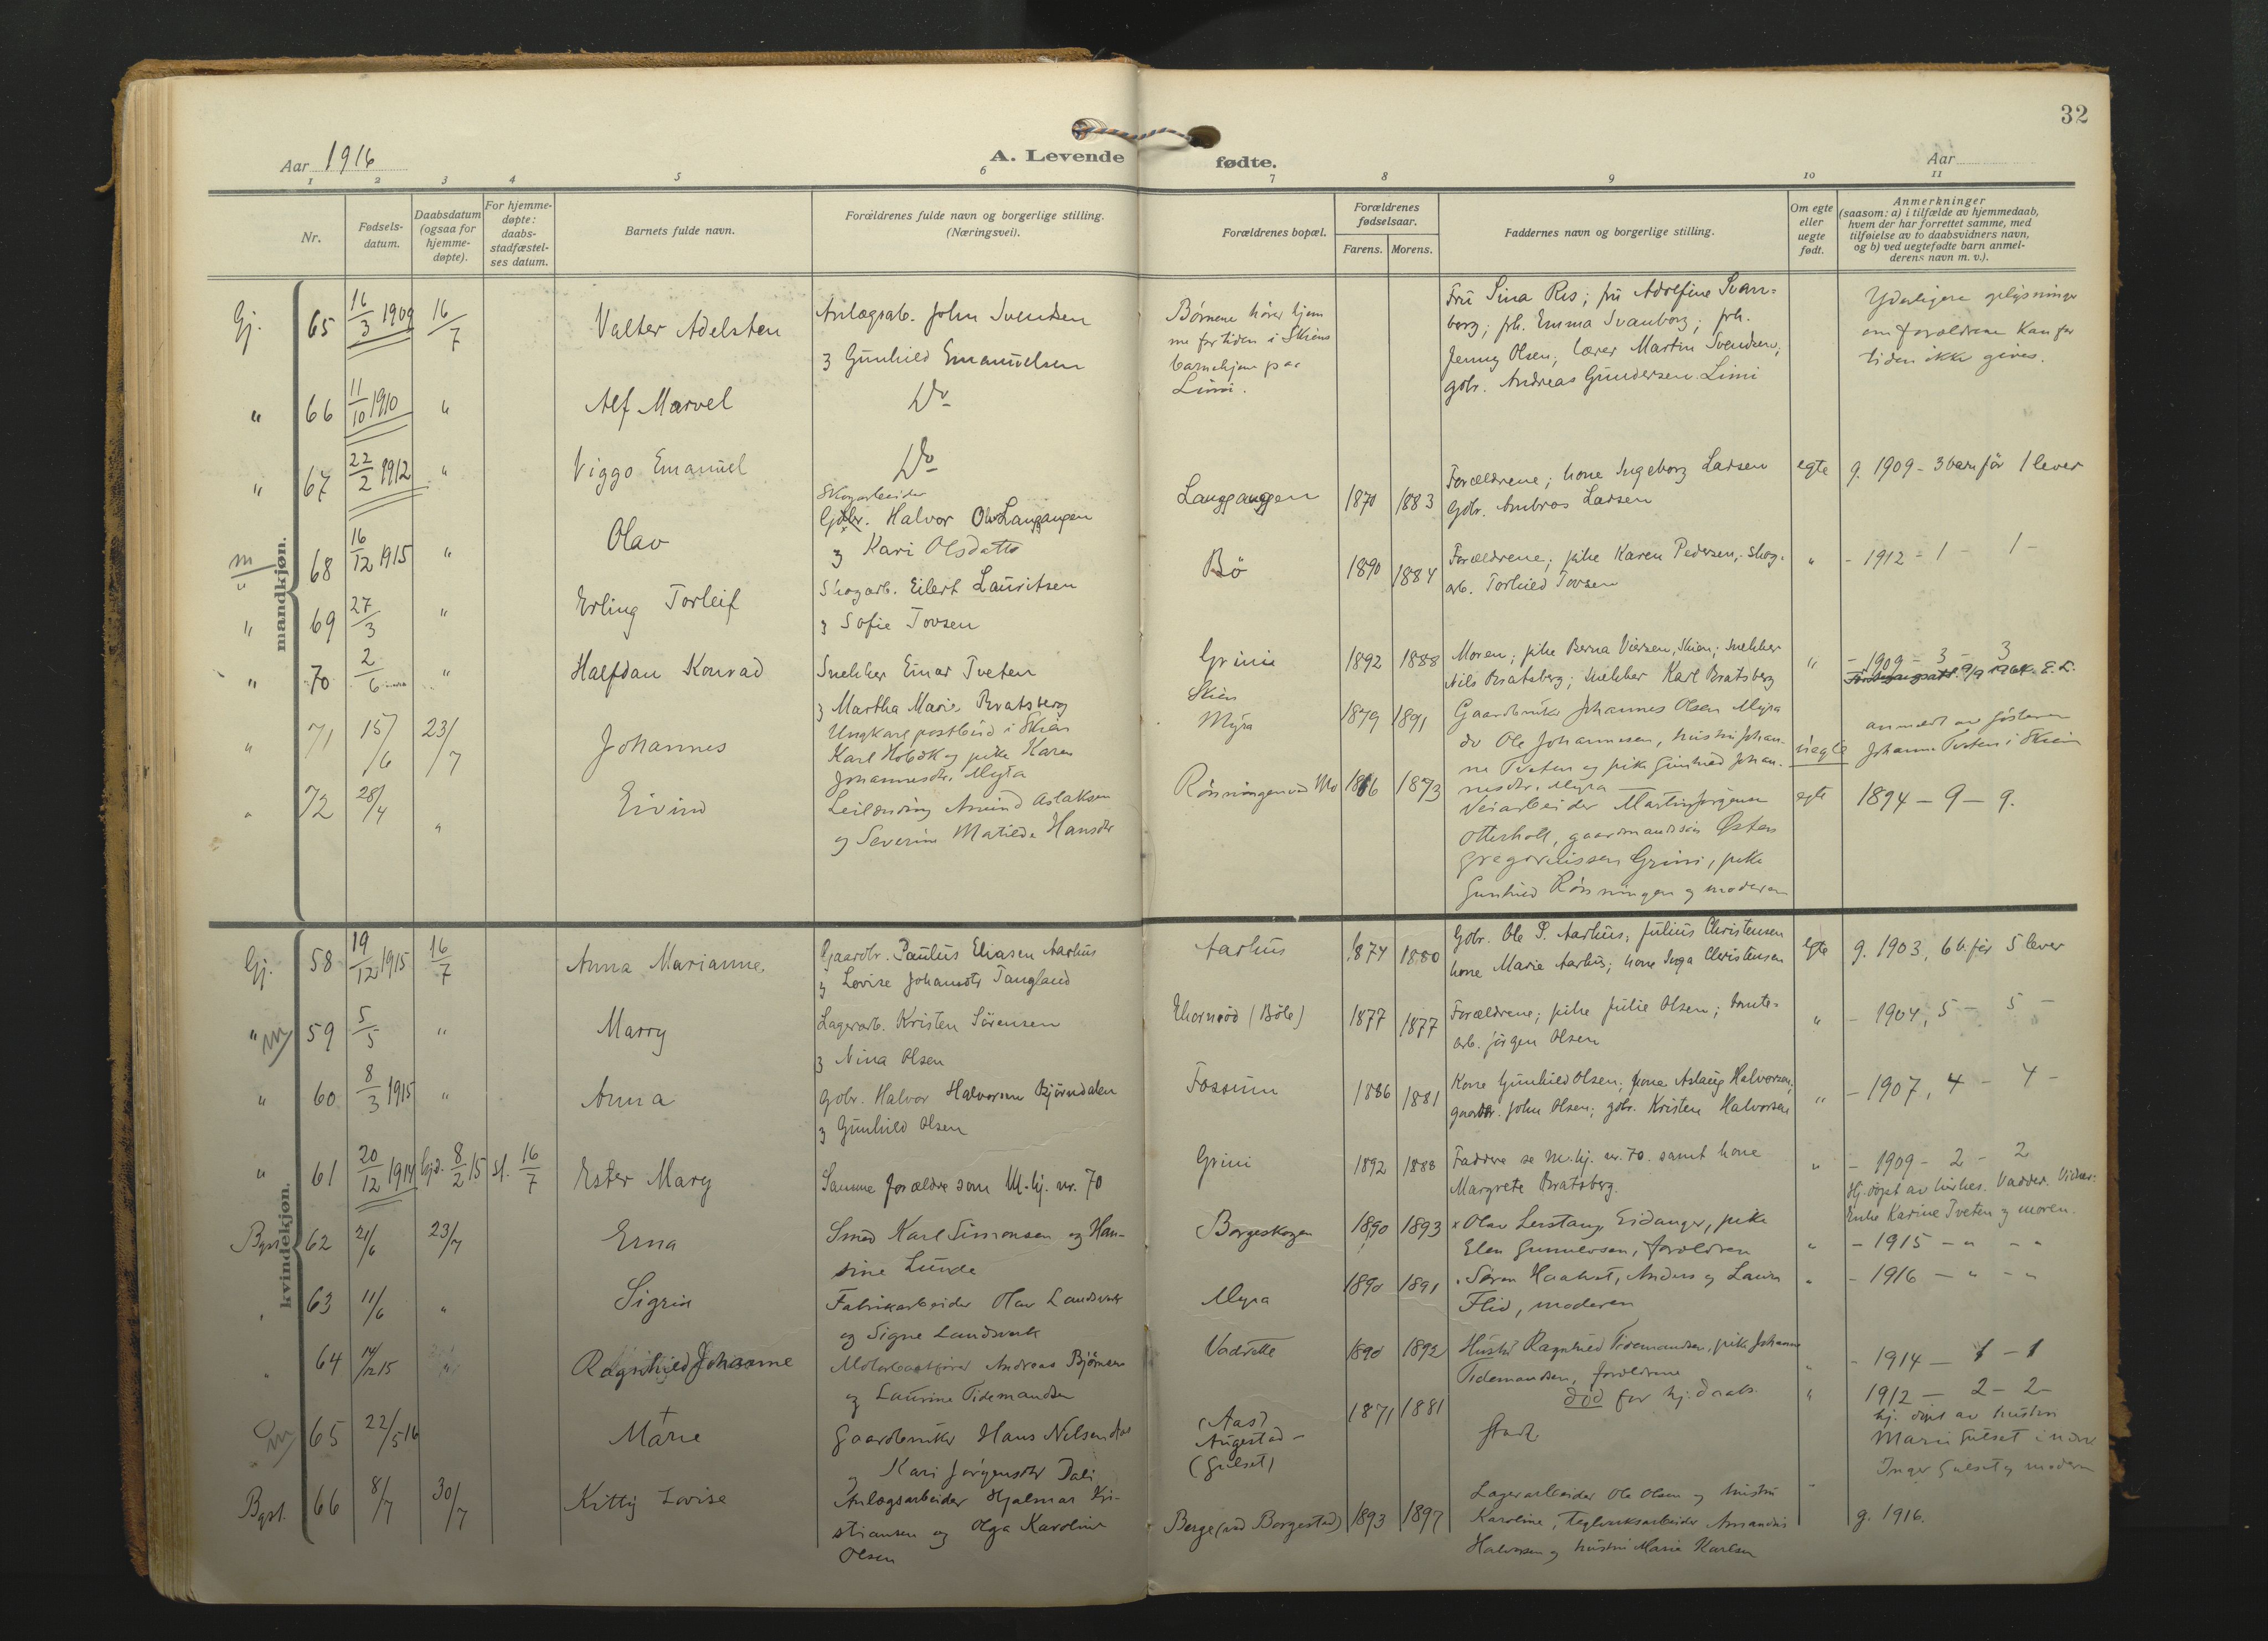 32
Aar 1916
A. Levende fødte.
Aar
1 2 3 4 5 6 7 8 9 10 11
Nr.
Fødsels-
datum.
Daabsdatum
(ogsaa for
hjemme-
døpte).
For hjemme-
døpte:
daabs-
stadfæstel-
ses datum.
Barnets fulde navn.
Forældrenes fulde navn og borgerlige stilling.
(Næringsvei).
Forældrenes bopæl.
Forældrenes
fødselsaar.
Farens. Morens.
Faddernes navn og borgerlige stilling.
Om egte
eller
uegte
født.
Anmerkninger
(saasom: a) i tilfælde av hjemmedaab,
hvem der har forrettet samme, med
tilføielse av to daabsvidners navn,
og b) ved uegtefødte barn anmel-
derens navn m. v.).
mandkjøn.
Gj. 65 16/3 1909 16/7 Valter Adelsten
Anlægsarb. John Svendsen
og Gunhild Emanuelsen
Børnene hører hjem
me for tiden i Skiens
barnehjem paa
Limi.
Fru Sina Ris; fru Adolfine Svan=
borg; frk. Emma Svanborg; frk.
Jenny Olsen; lærer Martin Svendsen;
gbr. Andreas Gundersen Limi
Yderligere oplysninger
om forældrene kan for
tiden ikke gives.
" 66 11/10 1910 " Alf Marvel Do
" 67 22/2 1912 " Viggo Emanuel Do
m " 68 16/12 1915 " Olav
Skogarbeider
Gdbr. Halvor Olsen Langgangen
og Kari Olsdatter
Langgangen 1870 1883
Forældrene; kone Ingeborg Larsen
Gbr. Ambros Larsen
egte g. 1909 - 3 barn før 1 lever
" 69 27/3 " Erling Torleif
Skogarb. Eilert Lauritsen
og Sofie Tovsen
Bö 1890 1884
Forældrene; pike Karen Pedersen; skog.
arb. Torhild Tovsen
" - 1912 - 1 - 1 -
" 70 2/6 " Halfdan Konrad
Snekker Einar Tveten
og Martha Marie Bratsberg
Grini 1892 1888
Moren; pike Berna Viersen, Skien; snekker
Nils Bratsberg; snekker Karl Bratsberg
" - 1909 - 3 - 3
9/9 1964. E. L.
" 71 15/6 23/7 Johannes
Ungkarl postbud i Skien
Karl Hobæk og pike Karen
Johannesdtr. Myra
Skien
Myra 1879 1891
Gaardbruker Johannes Olsen Myra
do Ole Johannesen, hustru Johan-
ne Tveten og pike Gunhild Johan-
nesdtr. Myra
uegte
anmeldt av søsteren
Johanne Tveten i Skien
" 72 28/4 " Eivind
Leilending Amund Aslaksen
og Severine Matilde Hansdtr
Rönningen ved Mo 1866 1873
Veiarbeider Martin Jörgensen
Otterholt, gaardmandssön Östen
Gregoriussen Grini, pike
Gunhild Rönningen og moderen
egte 1894 - 9 - 9.
kvindekjøn.
Gj. 58 19/12 1915 16/7 Anna Marianne.
Gaardbr. Paulus Eliasen Aarhus
og Lovise Johansdtr Tangland
Aarhus 1874 1880
Gbr. Ole P. Aarhus; Julius Christensen
kone Marie Aarhus; kone Inga Christensen
egte g. 1903, 6 b. før 5 lever
" m 59 5/5 " Marry
Lagerarb. Kristen Sørensen
og Nina Olsen
(Böle) 1877 1877
Forældrene; pike Julie Olsen; tomte=
arb. Jörgen Olsen
" - 1904, 5 - 5 -
" 60 8/3 1915 " Anna
Gbr. Halvor Halvorsen Bjørndalen
og Gunhild Olsen
Fossum 1886 1881
Kone Gunhild Olsen; kone Aslaug Halvorsen;
gaardbr. John Olsen; gbr. Kristen Halvorsen
" - 1907, 4 - 4 -
" 61 20/12 1914 hjd. 8/2 15 st. 16/7 Ester Mary
Samme forældre som M.kj. nr. 70
Grini 1892 1888
Faddere se M.kj. nr. 70. samt kone
Margrete Bratsberg.
" - 1909 - 2 - 2
Hj. døpt av kirkes. Vadder. Vidner:
Enke Karine Tveten og moren.
Bgst. 62 21/6 23/7 Erna
Smed Karl Simonsen og Han-
sine Lunde
Borgeskogen 1890 1893
x Olav Lerstang Eidanger, pike
Elen Gunnersen, forældren
" - 1915 - " - "
" 63 11/6 " Sigrid
Fabrikarbeider Olav Landsverk
og Signe Landsverk
Myra 1890 1891
Søren Haahvet, Anders og Laura
Flid, moderen
" - 1916 - " - "
" 64 14/12 15 " Ragnhild Johanne
Motorbaatfører Andreas Bjørnsen
og Laurine Tidemandsen
Vadrette 1890 1892
Hustru Ragnhild Tidemandsen, pike Johanne
Tidemandsen, forældrene
" - 1914 - 1 - 1
m 65 22/5 16 † Marie
Gaardbruker Hans Nilsen Aas
og Kari Jörgensdtr Dali
(Aas)
Augestad -
(Gulset)
1871 1881
död før hj. daabs.
stadf.
" 1912 - 2 - 2 -
hj. døpt av hustru
Marie Gulset vidne
Inger Gulset og moderen
Bgst. 66 8/7 30/7 Kitty Lovise
Anlægsarbeider Hjalmar Kri-
stiansen og Olga Karoline
Olsen
Berge (ved Borgestad) 1893 1897
Lagerarbeider Ole Olsen og hustru
Karoline, Teglverksarbeider Amandus
Halvorsen og hustru Marie Karlsen
" g. 1916.